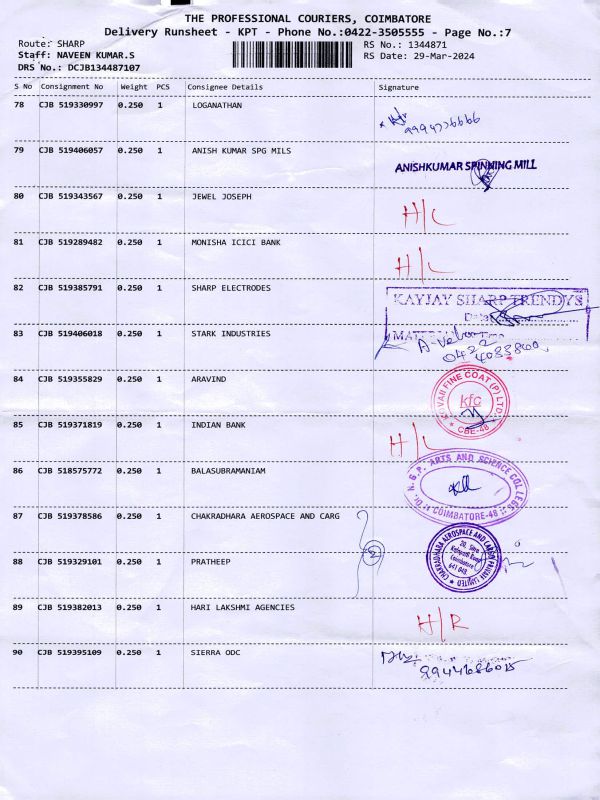 THE PROFESSIONAL COURIERS, COIMBATORE
Delivery Runsheet - KPT - Phone No.:0422-3505555 - Page No.:7
Route: SHARP
RS No.: 1344871
Staff: NAVEEN KUMAR.S
RS Date: 29-Mar-2024
DRS No.: DCJB134487107
S No Consignment No Weight PCS Consignee Details Signature
78 CJB 519330997 0.250 1 LOGANATHAN
79 CJB 519406057 0.250 1 ANISH KUMAR SPG MILS
ANISHKUMAR SPINNING MILL
80 CJB 519343567 0.250 1 JEWEL JOSEPH H/C
81 CJB 519289482 0.250 1 MONISHA ICICI BANK H/L
82 CJB 519385791 0.250 1 SHARP ELECTRODES
KAYJAY SHARP TRENDYS
Date
83 CJB 519406018 0.250 1 STARK INDUSTRIES
0422
84 CJB 519355829 0.250 1 ARAVIND
KOVAI FINE COAT (P) LTD.
kfc
* CBE-48 *
85 CJB 519371819 0.250 1 INDIAN BANK H/L
86 CJB 518575772 0.250 1 BALASUBRAMANIAM
Dr. N.G.P. ARTS AND SCIENCE COLLEGE
COIMBATORE-48
87 CJB 519378586 0.250 1 CHAKRADHARA AEROSPACE AND CARG
CHAKRADHARA AEROSPACE AND CARGO PRIVATE LIMITED
641 048
2
88 CJB 519329101 0.250 1 PRATHEEP
89 CJB 519382013 0.250 1 HARI LAKSHMI AGENCIES H/R
90 CJB 519395109 0.250 1 SIERRA ODC
9944686015